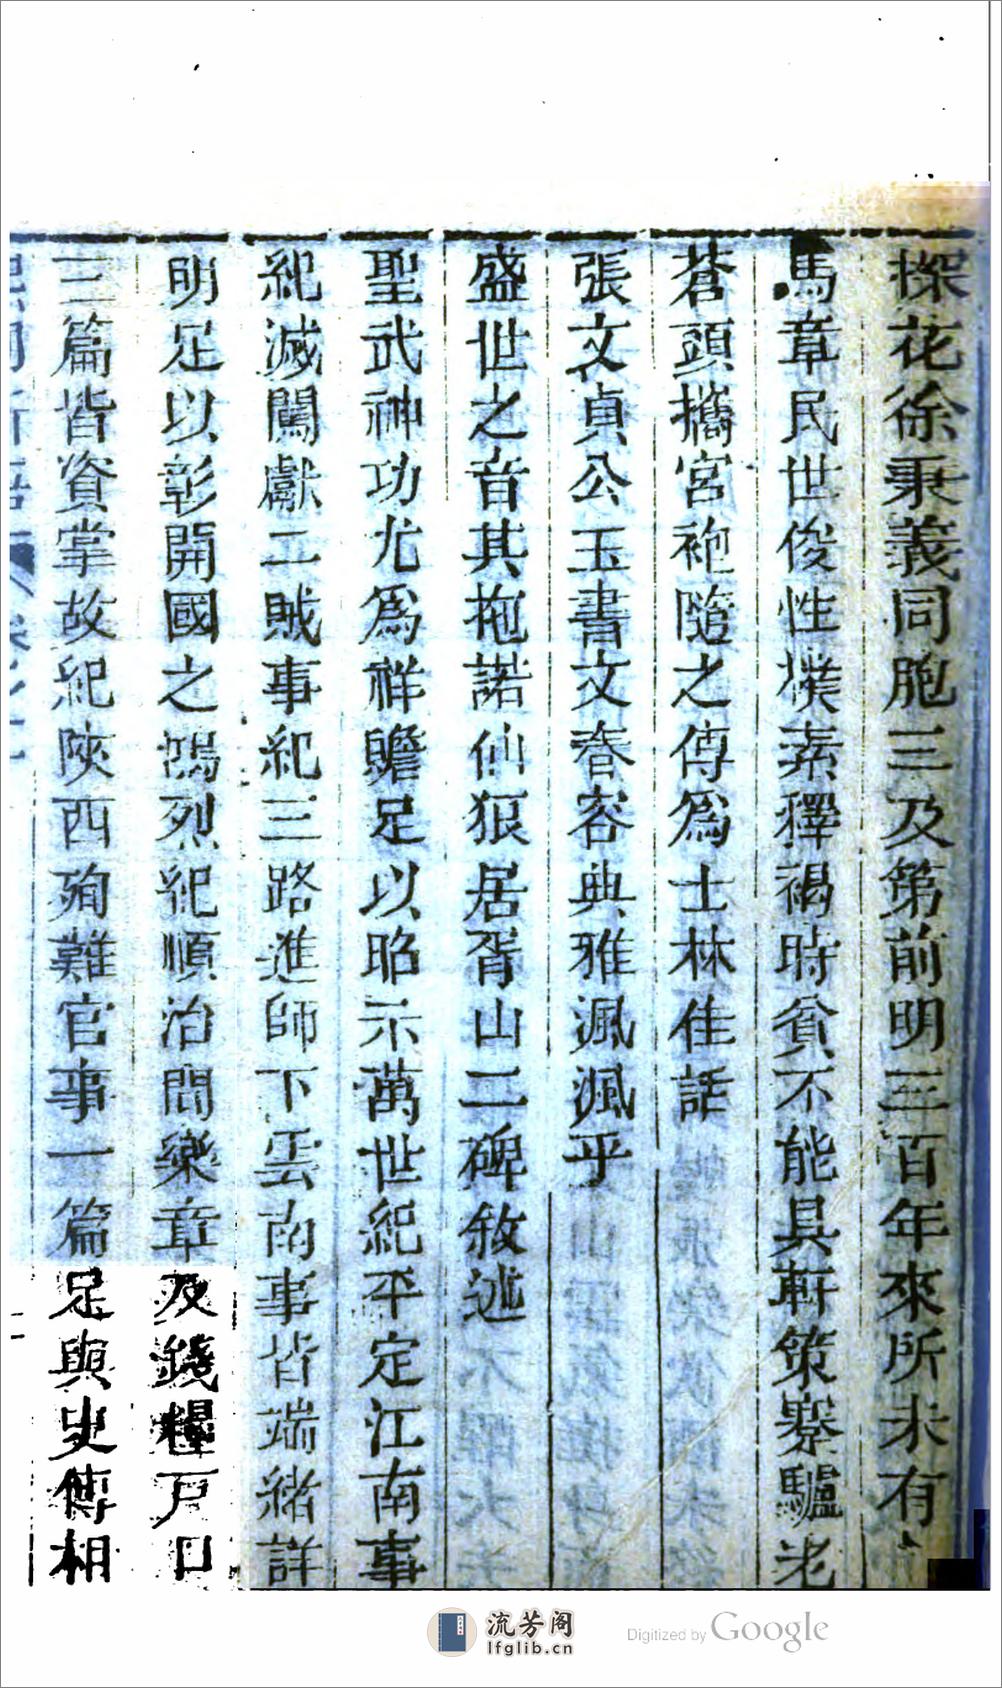 探花徐秉義同胞三及第前明三百年來所未有
馬章民世俊性樸素釋褐時貧不能具軒策蹇驢老
蒼頭攜宮袍隨之傳爲士林佳話
張文貞公玉書文春容典雅渢渢乎
盛世之音其拖諾仙狼居胥山二碑敘述
聖武神功尤爲祥贍足以昭示萬世紀平定江南事
紀滅闖獻二賊事紀三路進師下雲南事皆端緒詳
明足以彰開國之鴻烈紀順治間樂章及錢糧戸口
三篇皆資掌故紀陝西殉難官事一篇足與史傳相
二
流芳阁
lfglib.cn
Digitized by Google